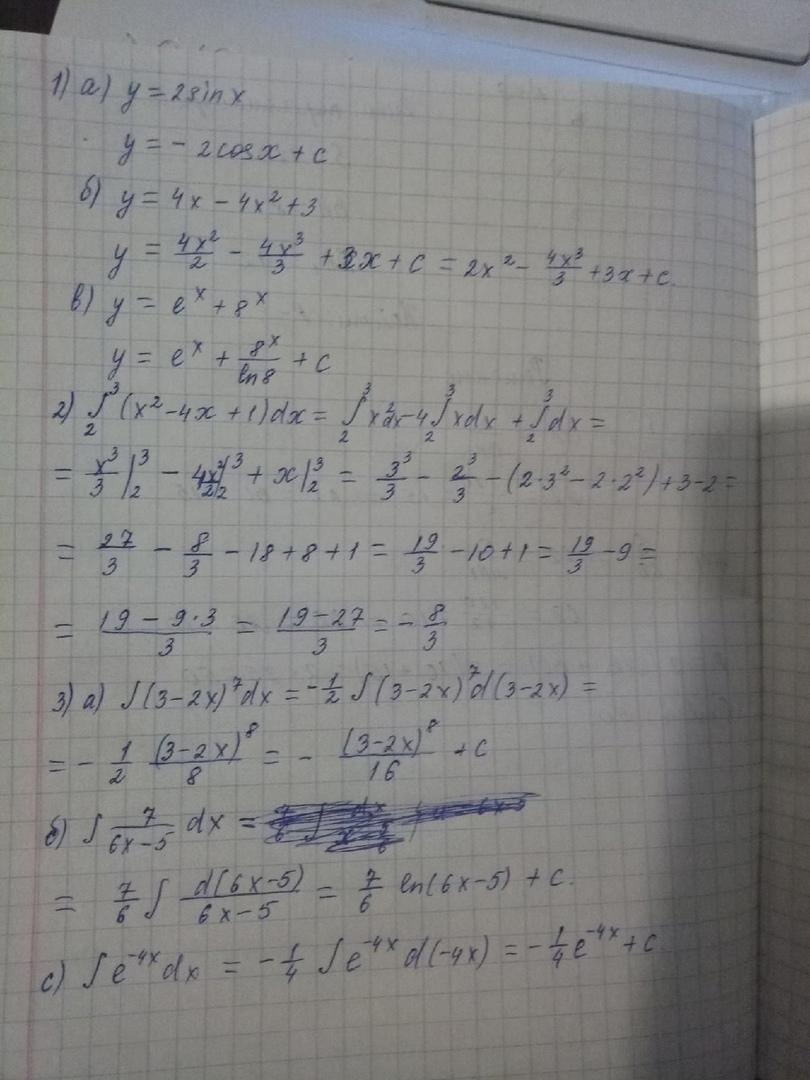 1) а) y = 2sin x
y = - 2cos x + c
б) y = 4x - 4x² + 3
y = 4x²/2 - 4x³/3 + 3x + c = 2x² - 4x³/3 + 3x + c.
в) y = eˣ + 8ˣ
y = eˣ + 8ˣ/ln8 + c
2) ∫₂³ (x² - 4x + 1)dx = ∫₂³ x²dx - 4∫₂³ xdx + ∫₂³ dx =
= x³/3 |₂³ - 4x²/2 |₂³ + x |₂³ = 3³/3 - 2³/3 - (2·3² - 2·2²) + 3 - 2 =
= 27/3 - 8/3 - 18 + 8 + 1 = 19/3 - 10 + 1 = 19/3 - 9 =
= (19 - 9·3)/3 = (19 - 27)/3 = - 8/3
3) а) ∫(3 - 2x)⁷dx = - 1/2 ∫(3 - 2x)⁷d(3 - 2x) =
= - 1/2 (3 - 2x)⁸/8 = - (3 - 2x)⁸/16 + c
б) ∫ 7/(6x - 5) dx =
= 7/6 ∫ d(6x - 5)/(6x - 5) = 7/6 ln(6x - 5) + c.
с) ∫e⁻⁴ˣdx = - 1/4 ∫e⁻⁴ˣ d(-4x) = - 1/4 e⁻⁴ˣ + c